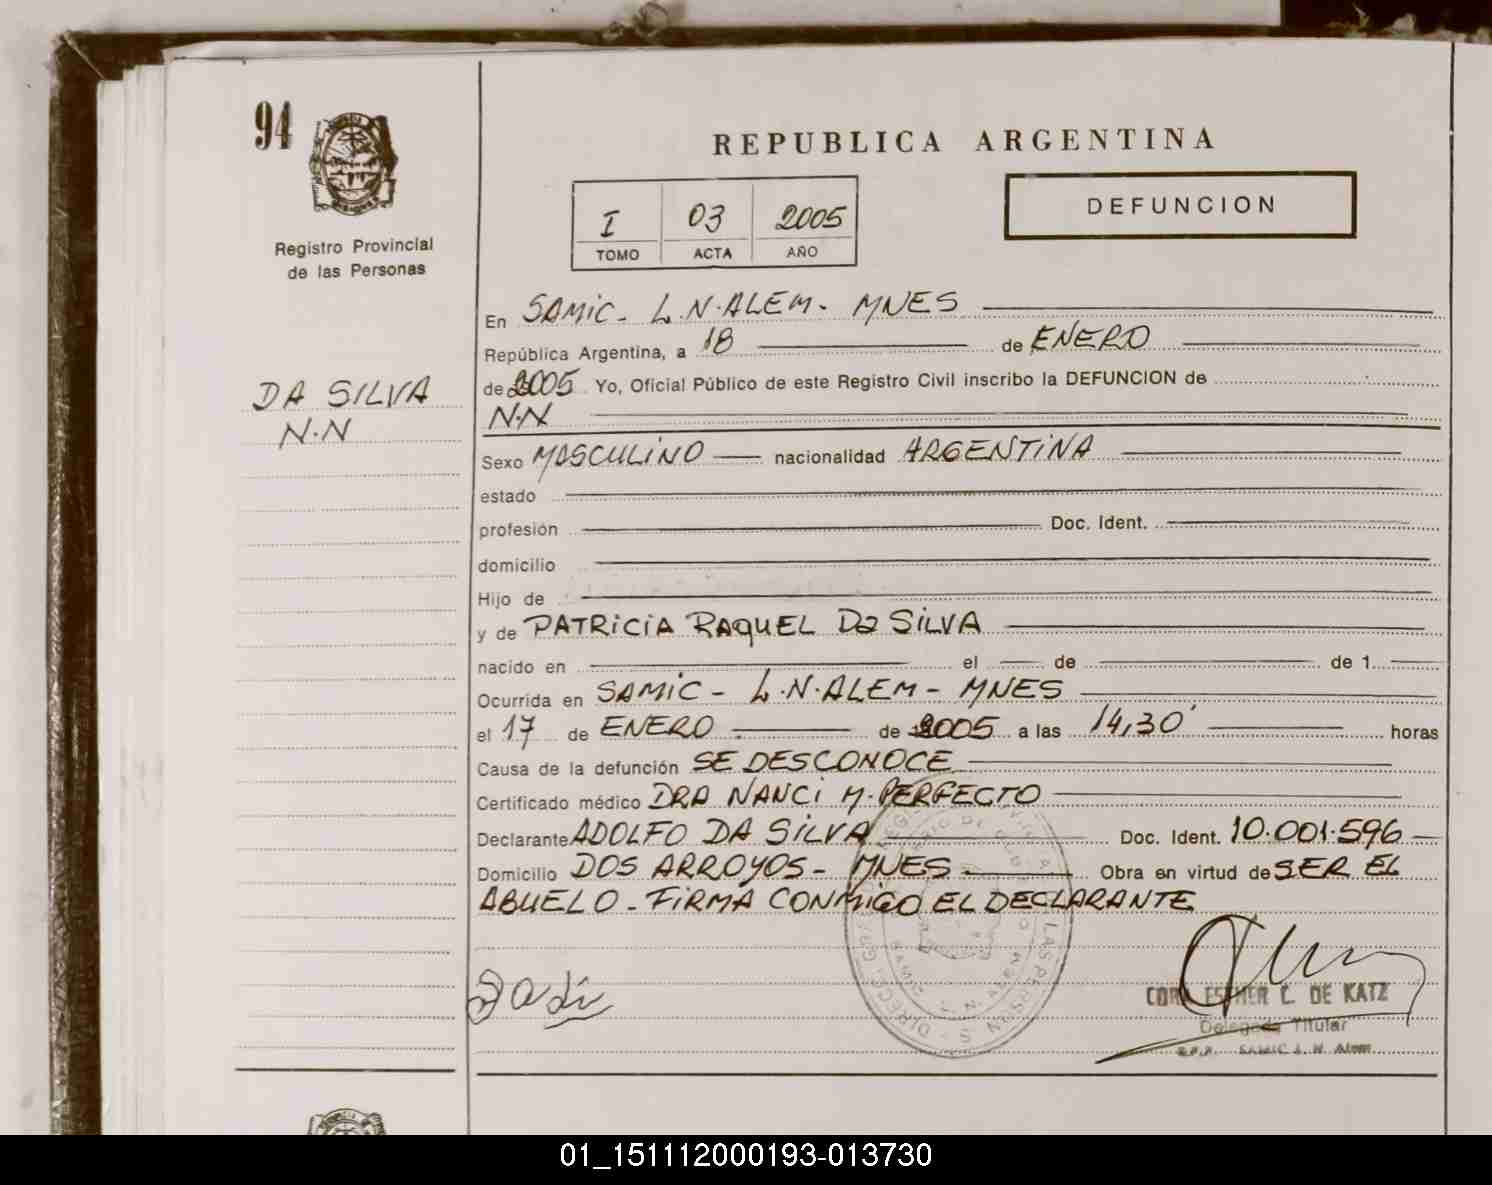 94
REPUBLICA ARGENTINA
I 03 2005
TOMO ACTA AÑO
DEFUNCION
Registro Provincial
de las Personas
DA SILVA
N.N
En SAMIC - L.N.ALEM - MNES
República Argentina, a 18 de ENERO
de 2005 Yo, Oficial Público de este Registro Civil inscribo la DEFUNCION de
N.N
Sexo MASCULINO nacionalidad ARGENTINA
estado
profesión Doc. Ident.
domicilio
Hijo de
y de PATRICIA RAQUEL Da SILVA
nacido en el de de 1
Ocurrida en SAMIC - L.N.ALEM - MNES
el 17 de ENERO de 2005 a las 14,30' horas
Causa de la defunción SE DESCONOCE
Certificado médico DRA NANCI M. PERFECTO
Declarante ADOLFO DA SILVA Doc. Ident. 10.001.596
Domicilio DOS ARROYOS - MNES Obra en virtud de SER EL
ABUELO - FIRMA CONMIGO EL DECLARANTE
CORA ESTHER C. DE KATZ
Delegada Titular
R.P.P. SAMIC L. N. Alem
01_151112000193-013730